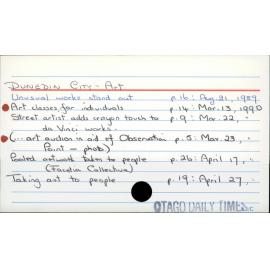 DUNEDIN CITY - Art
Unusual works stand out p.16: Aug. 21, 1989
Art classes for individuals p.14: Mar. 13, 1990
Street artist adds crayon touch to p.9: Mar. 22, "
da Vinci works.
(... art auction in aid of Observation p.5: Mar. 23, "
Point - photo)
Pooled artwork taken to people p.26: April 17, "
(Facelia Collective)
Taking art to people p.19: April 27, "
OTAGO DAILY TIMES